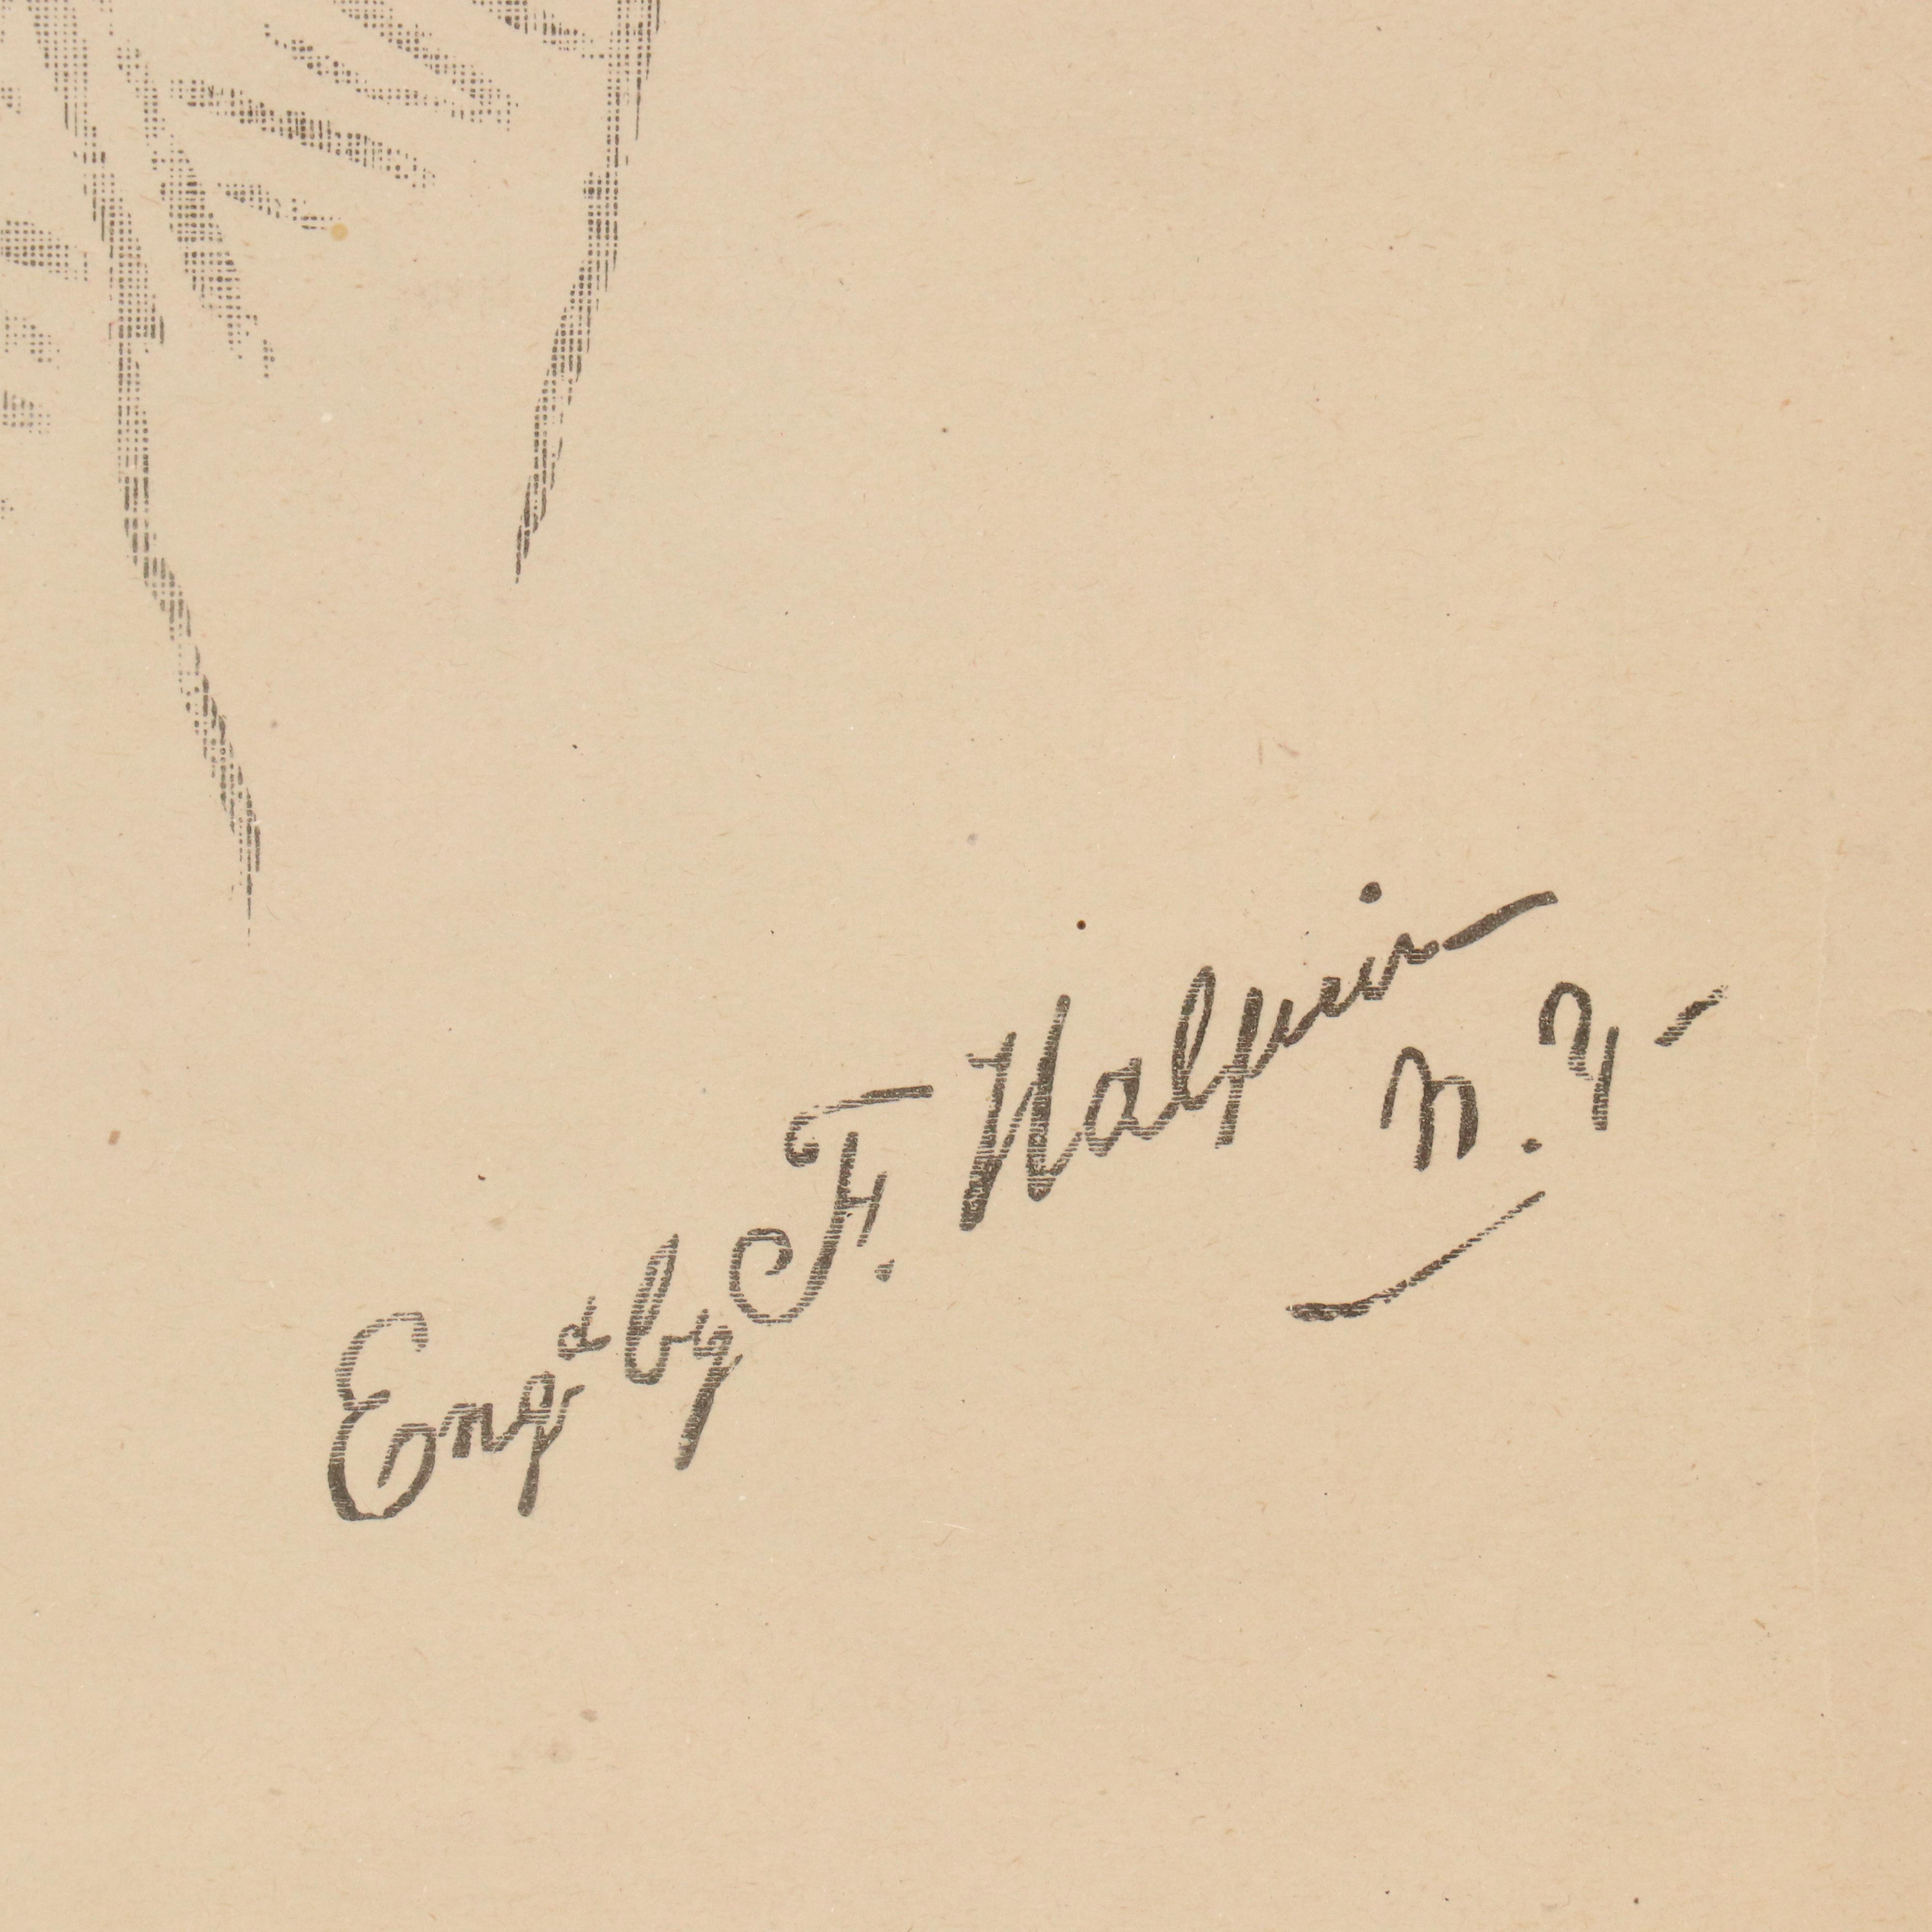 Engd by F. Halpin
N.Y-